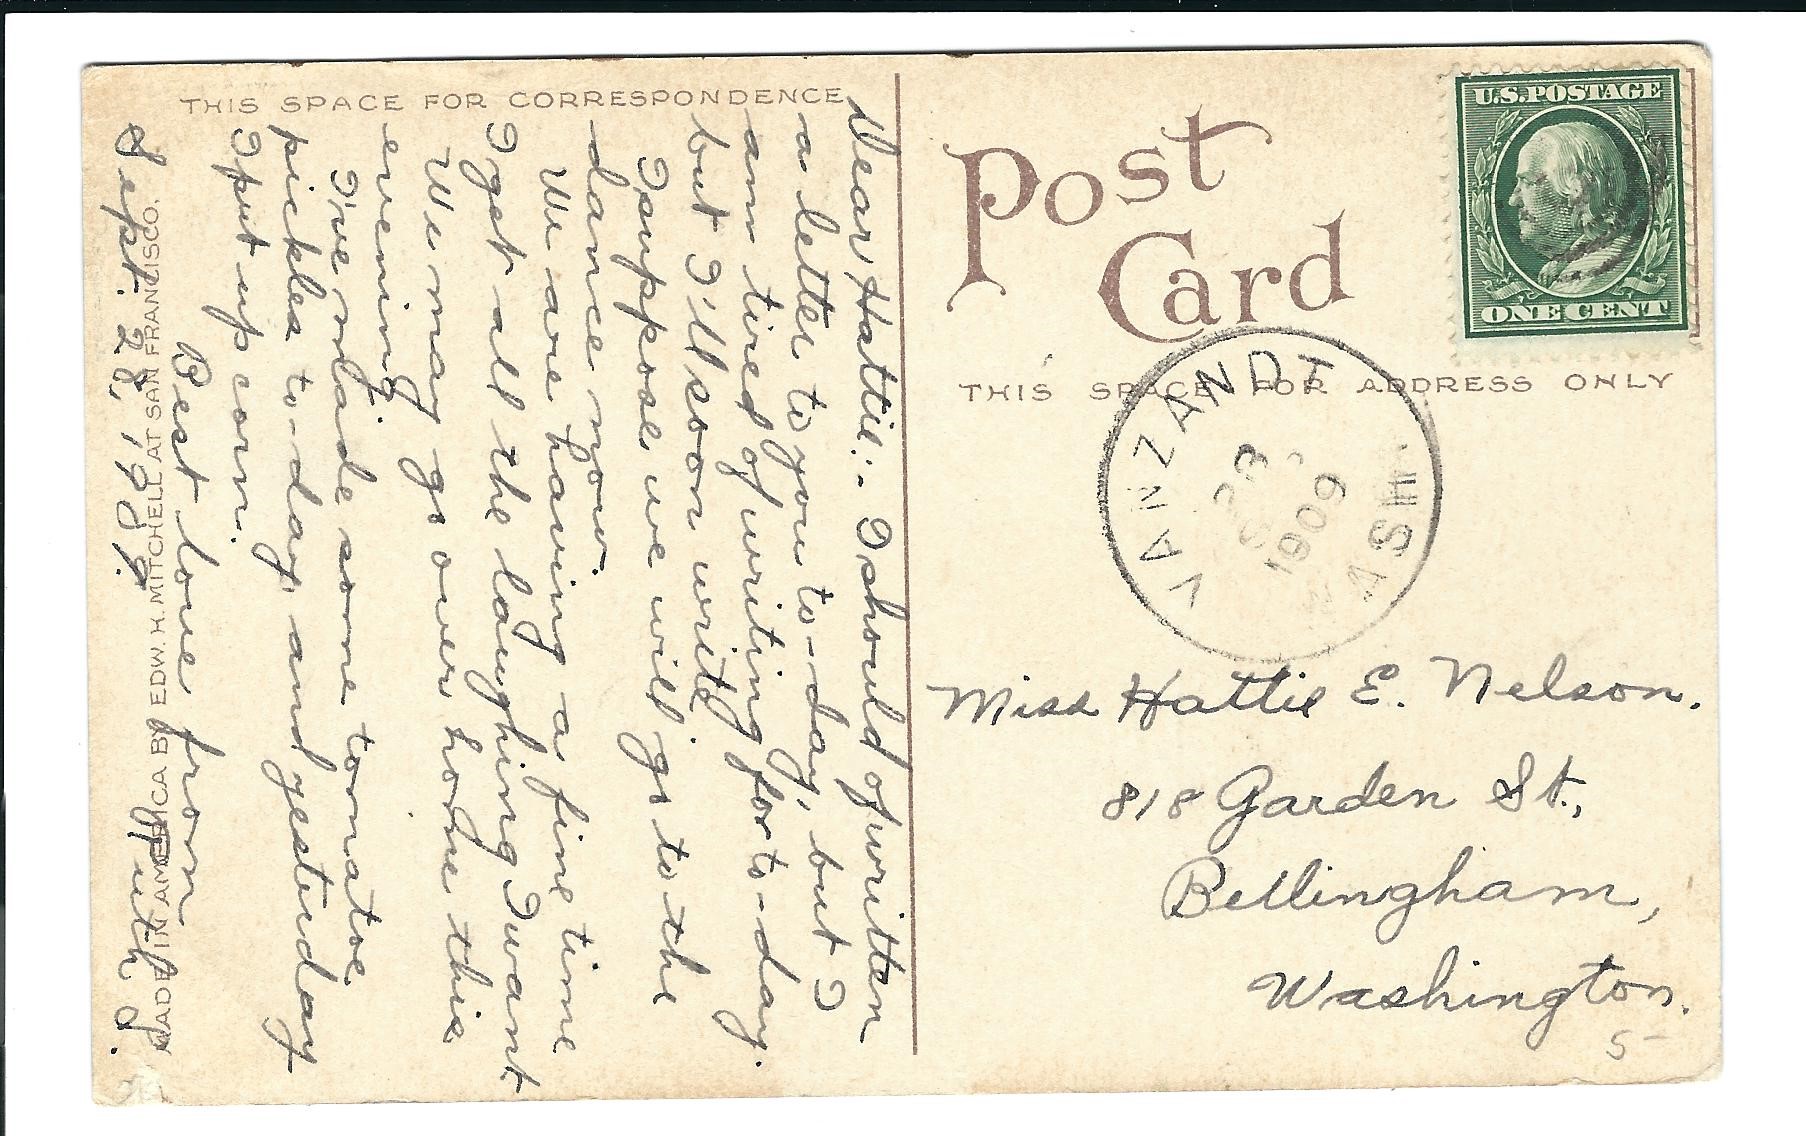 THIS SPACE FOR CORRESPONDENCE
Dear Hattie:- I should of written
a letter to you to-day, but I
am tired of writing for to-day.
but I'll soon write.
I suppose we will go to the
dance now.
We are having a fine time
I get all the laughing I want
We may go over home this
evening.
I've made some tomatoe
pickles to-day, and yesterday
I put up corn.
Best love from
Sept. 28, 1909. Ruth S.
MADE IN AMERICA BY EDW. H. MITCHELL AT SAN FRANCISCO.
Post
Card
U.S. POSTAGE
ONE CENT
THIS SPACE FOR ADDRESS ONLY
VANZANDT
28
1909
WASH.
Miss Hattie E. Nelson.
818 Garden St.,
Bellingham,
Washington.
5-